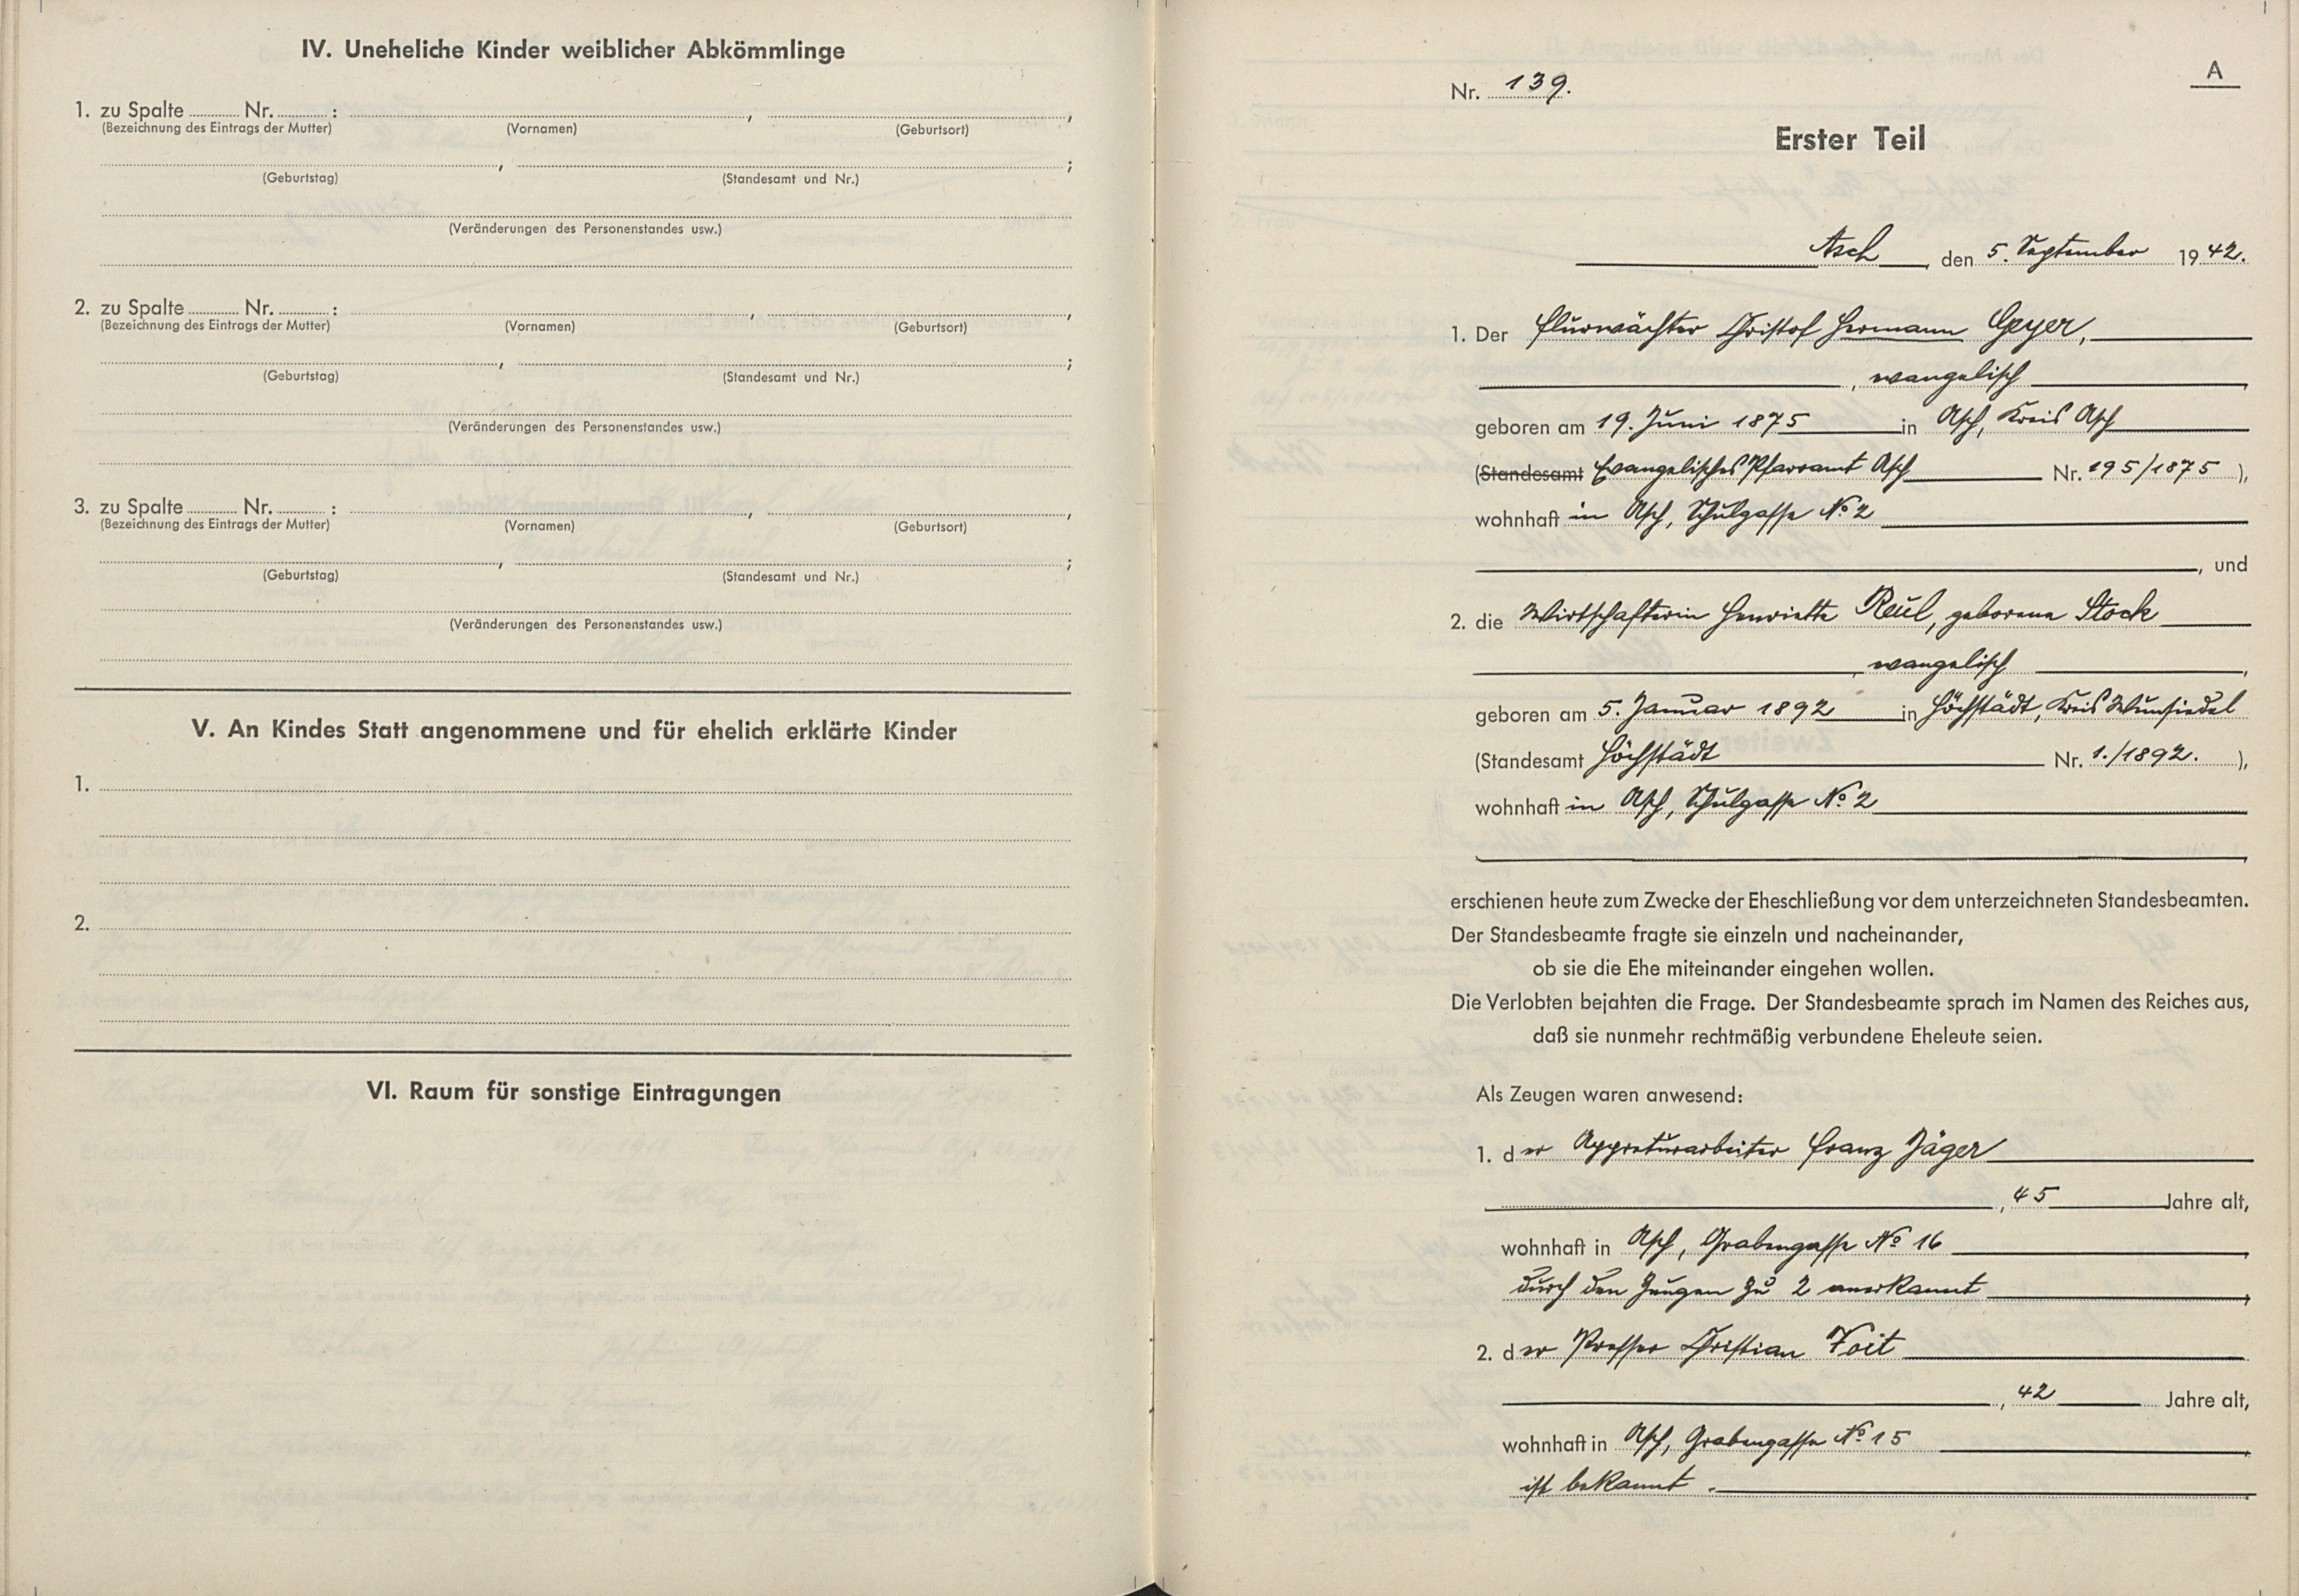 IV. Uneheliche Kinder weiblicher Abkömmlinge
1. zu Spalte Nr. : , ,
(Bezeichnung des Eintrags der Mutter) (Vornamen) (Geburtsort)
, ;
(Geburtstag) (Standesamt und Nr.)
(Veränderungen des Personenstandes usw.)
2. zu Spalte Nr. : , ,
(Bezeichnung des Eintrags der Mutter) (Vornamen) (Geburtsort)
, ;
(Geburtstag) (Standesamt und Nr.)
(Veränderungen des Personenstandes usw.)
3. zu Spalte Nr. : , ,
(Bezeichnung des Eintrags der Mutter) (Vornamen) (Geburtsort)
, ;
(Geburtstag) (Standesamt und Nr.)
(Veränderungen des Personenstandes usw.)
V. An Kindes Statt angenommene und für ehelich erklärte Kinder
1.
2.
VI. Raum für sonstige Eintragungen
A
Nr. 139.
Erster Teil
Asch, den 5. September 1942.
1. Der Flurwächter Christof Hermann Geyer,
, evangelisch,
geboren am 19. Juni 1875 in Asch, Kreis Asch
(Standesamt Evangelisches Pfarramt Asch Nr. 195/1875 ),
wohnhaft in Asch, Schulgasse No 2
, und
2. die Wirtschafterin Henriette Reul, geborene Stock
, evangelisch,
geboren am 5. Januar 1892 in Höchstädt, Kreis Wunsiedel
(Standesamt Höchstädt Nr. 1./1892. ),
wohnhaft in Asch, Schulgasse No 2
erschienen heute zum Zwecke der Eheschließung vor dem unterzeichneten Standesbeamten.
Der Standesbeamte fragte sie einzeln und nacheinander,
ob sie die Ehe miteinander eingehen wollen.
Die Verlobten bejahten die Frage. Der Standesbeamte sprach im Namen des Reiches aus,
daß sie nunmehr rechtmäßig verbundene Eheleute seien.
Als Zeugen waren anwesend:
1. der Appreturarbeiter Franz Jäger
, 45 Jahre alt,
wohnhaft in Asch, Grabengasse No 16,
durch den Zeugen zu 2 anerkannt,
2. der Presser Christian Voit
, 42 Jahre alt,
wohnhaft in Asch, Grabengasse No 15,
ist bekannt.